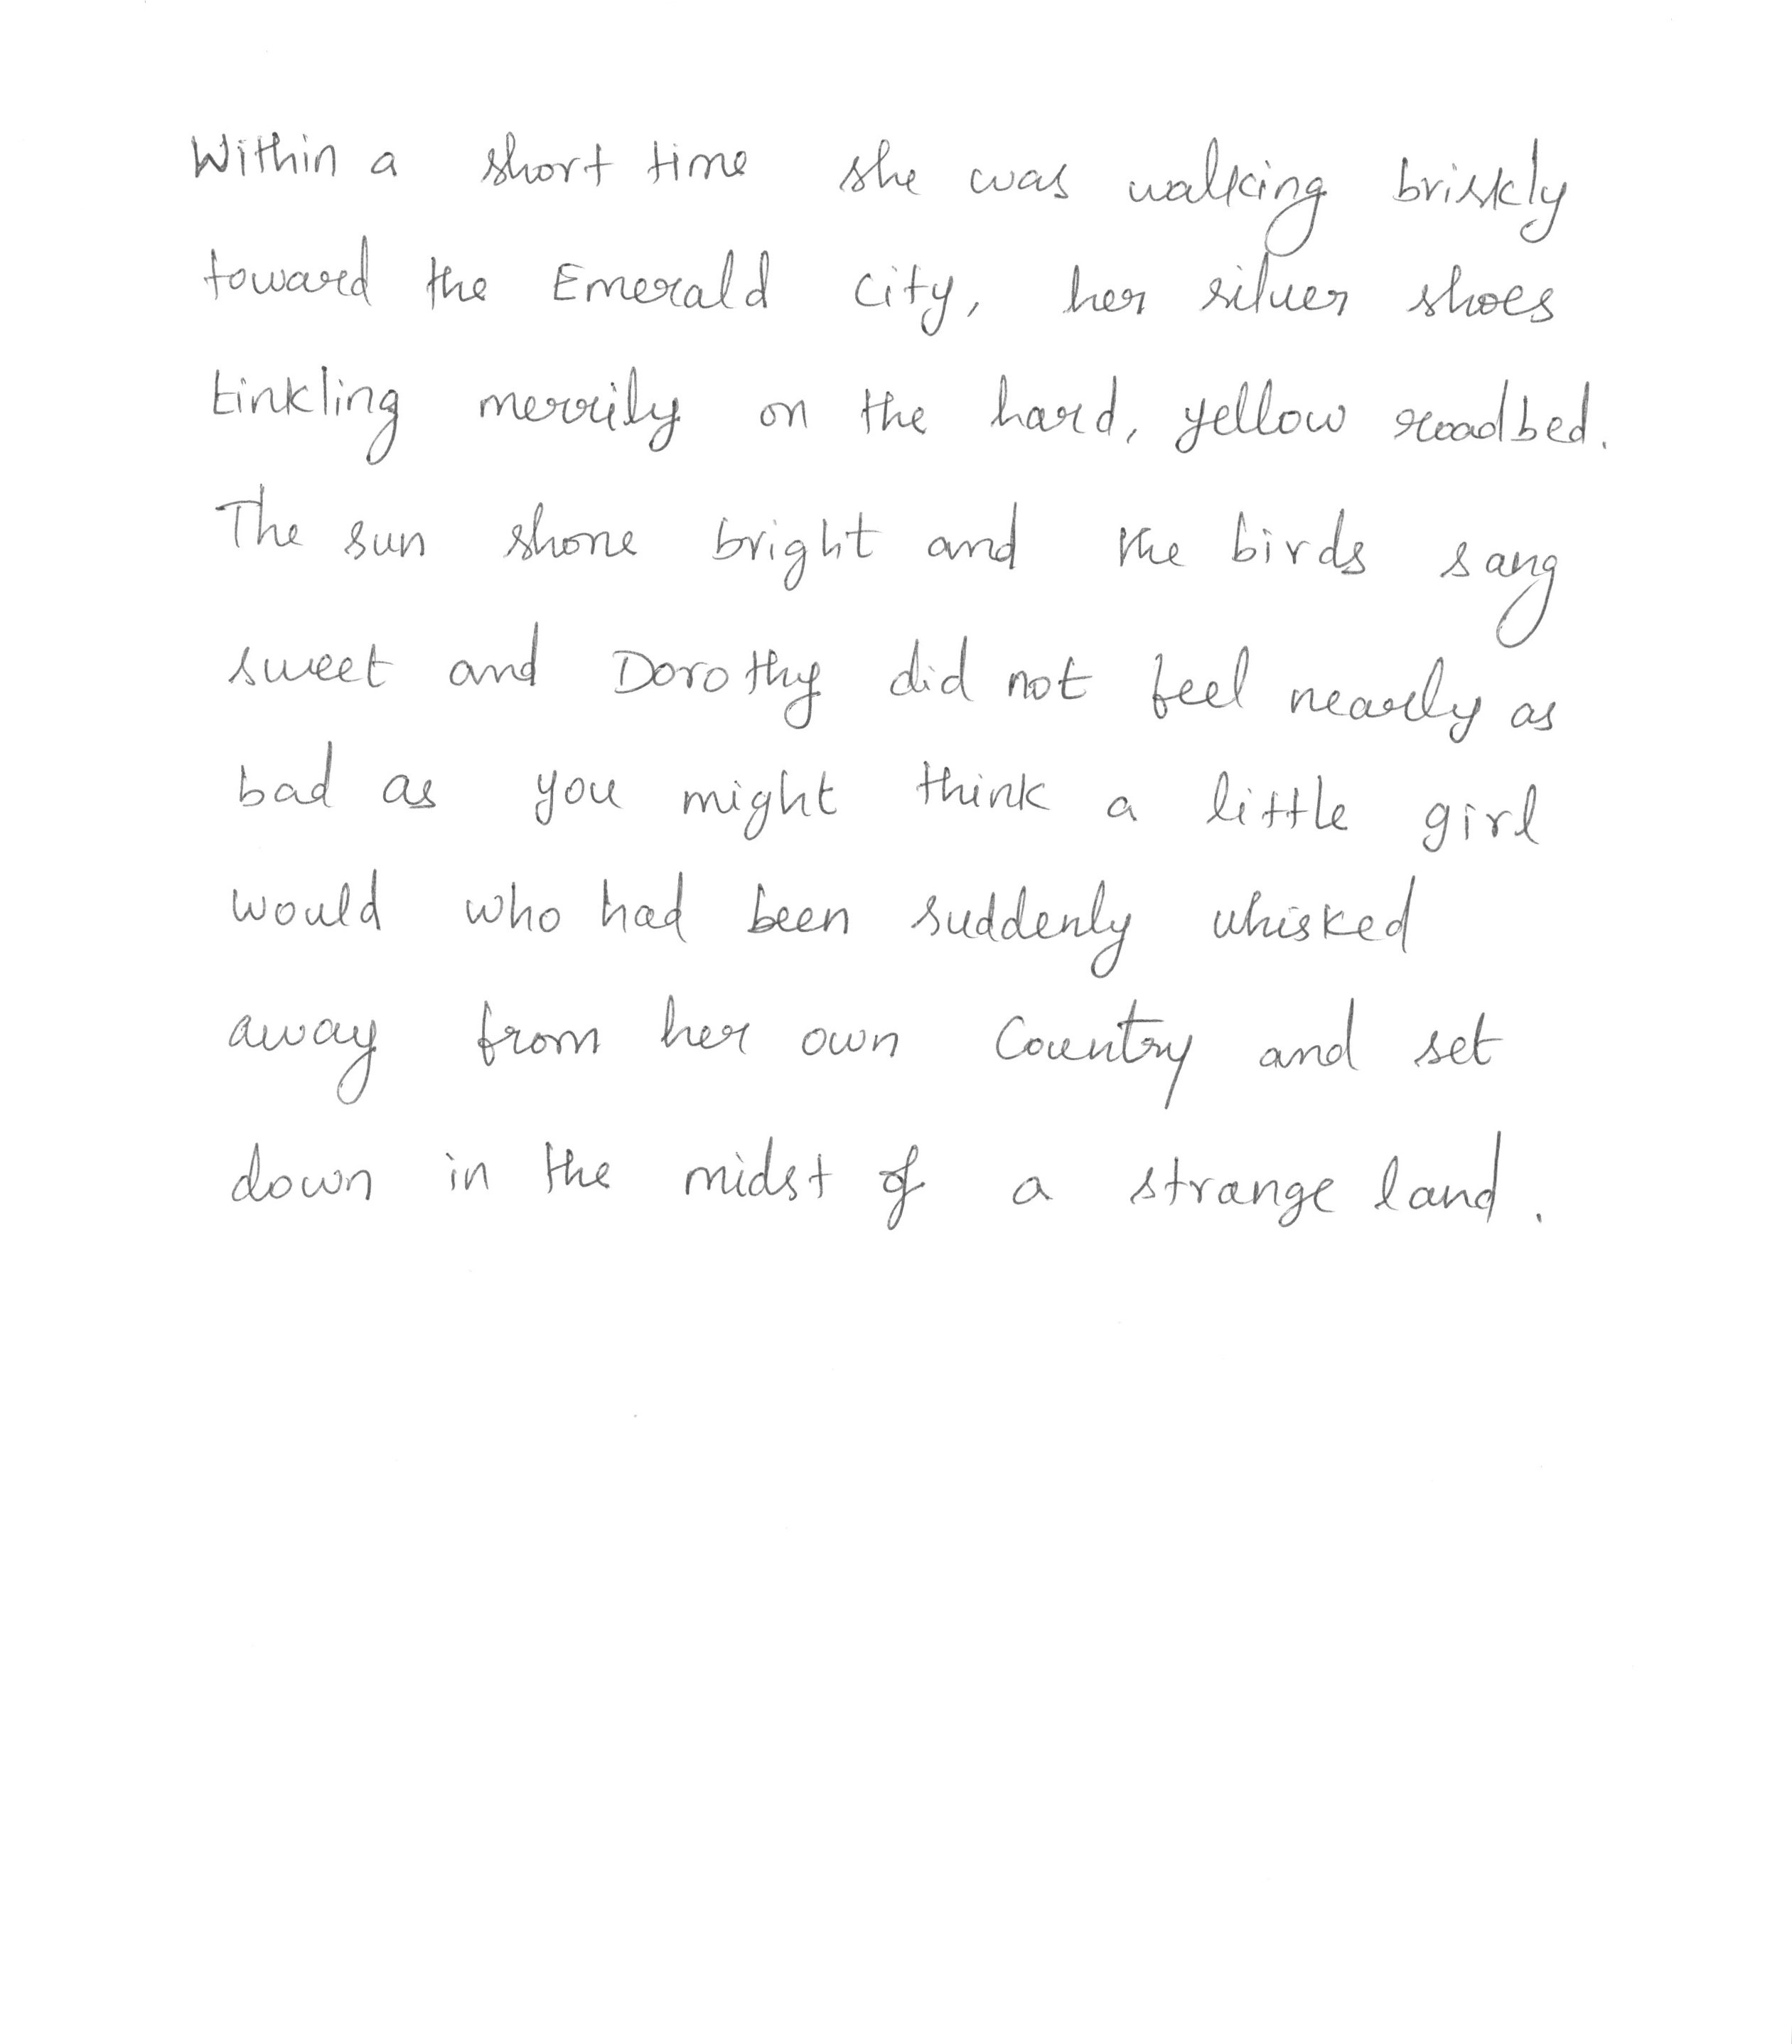 Within a short time she was walking briskly
toward the Emerald City, her silver shoes
tinkling merrily on the hard, yellow roadbed.
The sun shone bright and the birds sang
sweet and Dorothy did not feel nearly as
bad as you might think a little girl
would who had been suddenly whisked
away from her own Country and set
down in the midst of a strange land.